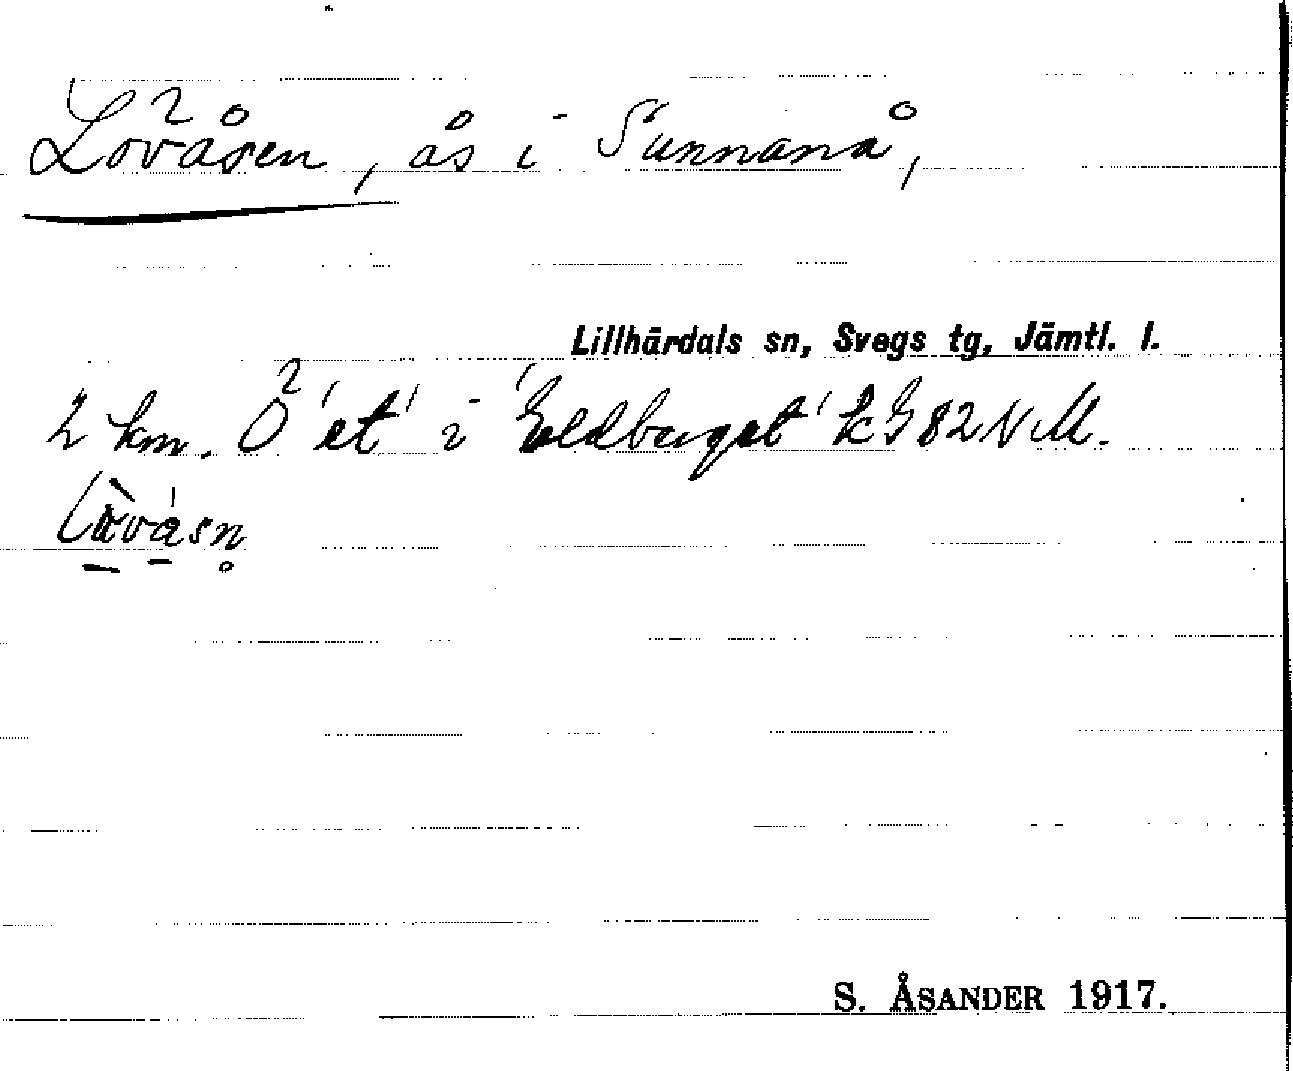 Lövåsen, ås i Sunnanå,
Lillhärdals sn, Svegs tg, Jämtl. l.
2 km. Ö 'et' i 'Eldbuget' k G 82 NM.
S. ÅSANDER 1917.